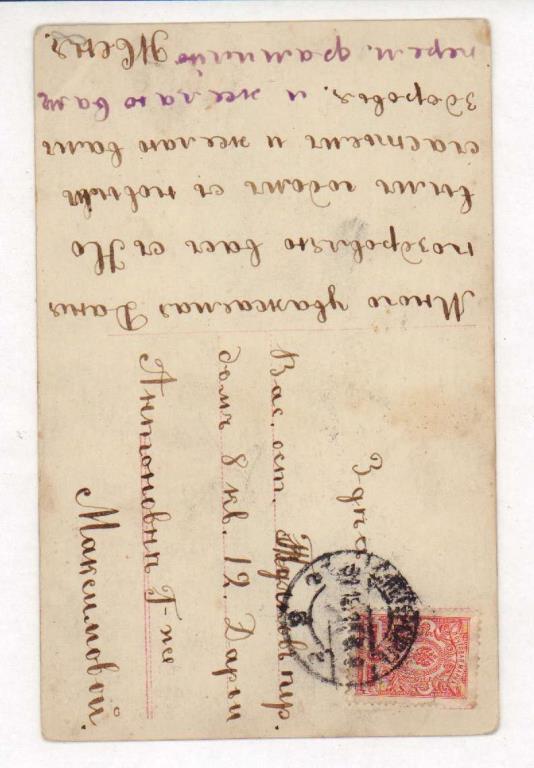 Много уважаемая Даня
поздровляю васъ съ Но
вимъ годомъ съ новимъ
счастьемъ и желаю вамъ
здоровья. и желаю вамъ
перем. фамилію Женя.
Здѣсь
Вас. ост. пер.
домъ 8 кв. 12. Дарьи
Антоновнѣ Г-же
Максимовой.